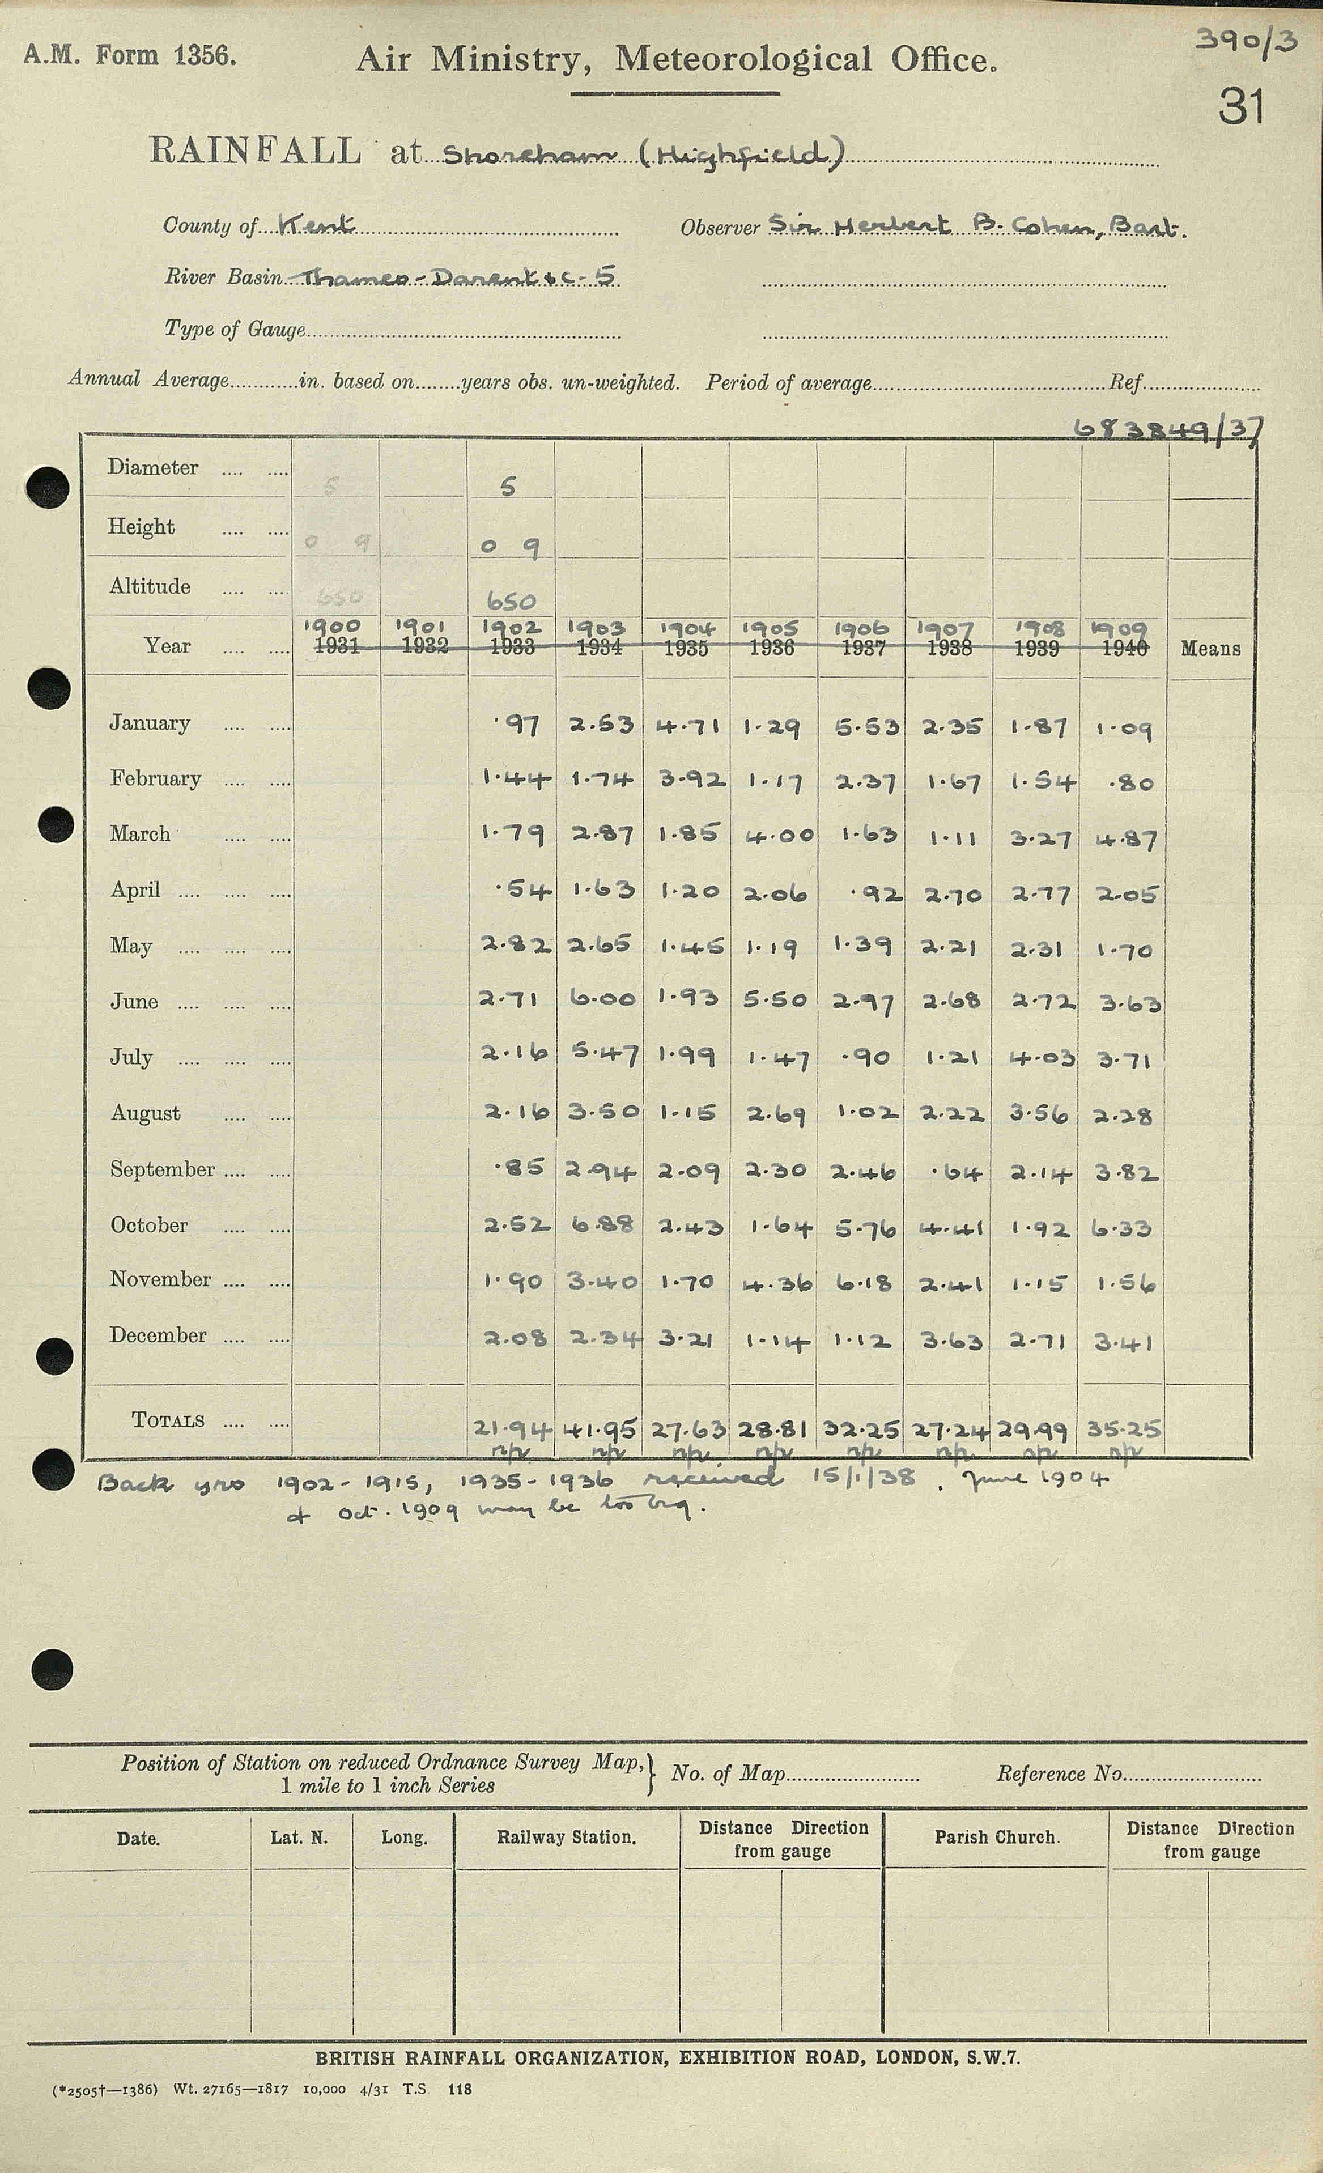 390/3
A.M. Form 1356. Air Ministry, Meteorological Office.
31
RAINFALL at Shoreham (Highfield)
County of Kent Observer Sir Herbert B. Cohen, Bart.
River Basin Thames - Darent & c - 5
Type of Gauge
Annual Average in. based on years obs. un-weighted. Period of average Ref.
683849/37
Diameter 5 5
Height 0 9 0 9
Altitude 650 650
1900 1901 1902 1903 1904 1905 1906 1907 1908 1909
Year 1931 1932 1933 1934 1935 1936 1937 1938 1939 1940 Means
January ·97 2·53 4·71 1·29 5·53 2·35 1·87 1·09
February 1·44 1·74 3·92 1·17 2·37 1·67 1·54 ·80
March 1·79 2·87 1·85 4·00 1·63 1·11 3·27 4·87
April ·54 1·63 1·20 2·06 ·92 2·70 2·77 2·05
May 2·82 2·65 1·45 1·19 1·39 2·21 2·31 1·70
June 2·71 6·00 1·93 5·50 2·97 2·68 2·72 3·63
July 2·16 5·47 1·99 1·47 ·90 1·21 4·03 3·71
August 2·16 3·50 1·15 2·69 1·02 2·22 3·56 2·28
September ·85 2·94 2·09 2·30 2·46 ·64 2·14 3·82
October 2·52 6·88 2·43 1·64 5·76 4·41 1·92 6·33
November 1·90 3·40 1·70 4·36 6·18 2·41 1·15 1·56
December 2·08 2·34 3·21 1·14 1·12 3·63 2·71 3·41
TOTALS 21·94 41·95 27·63 28·81 32·25 27·24 29·99 35·25
np np np np np np np np
Back yrs 1902 - 1915, 1935 - 1936 received 15/1/38. June 1904
& Oct. 1909 may be too big.
Position of Station on reduced Ordnance Survey Map, } No. of Map Reference No.
1 mile to 1 inch Series
Date. Lat. N. Long. Railway Station. Distance Direction from gauge Parish Church. Distance Direction from gauge
BRITISH RAINFALL ORGANIZATION, EXHIBITION ROAD, LONDON, S.W.7.
(*2505†—1386) Wt. 27165—1817 10,000 4/31 T.S. 118